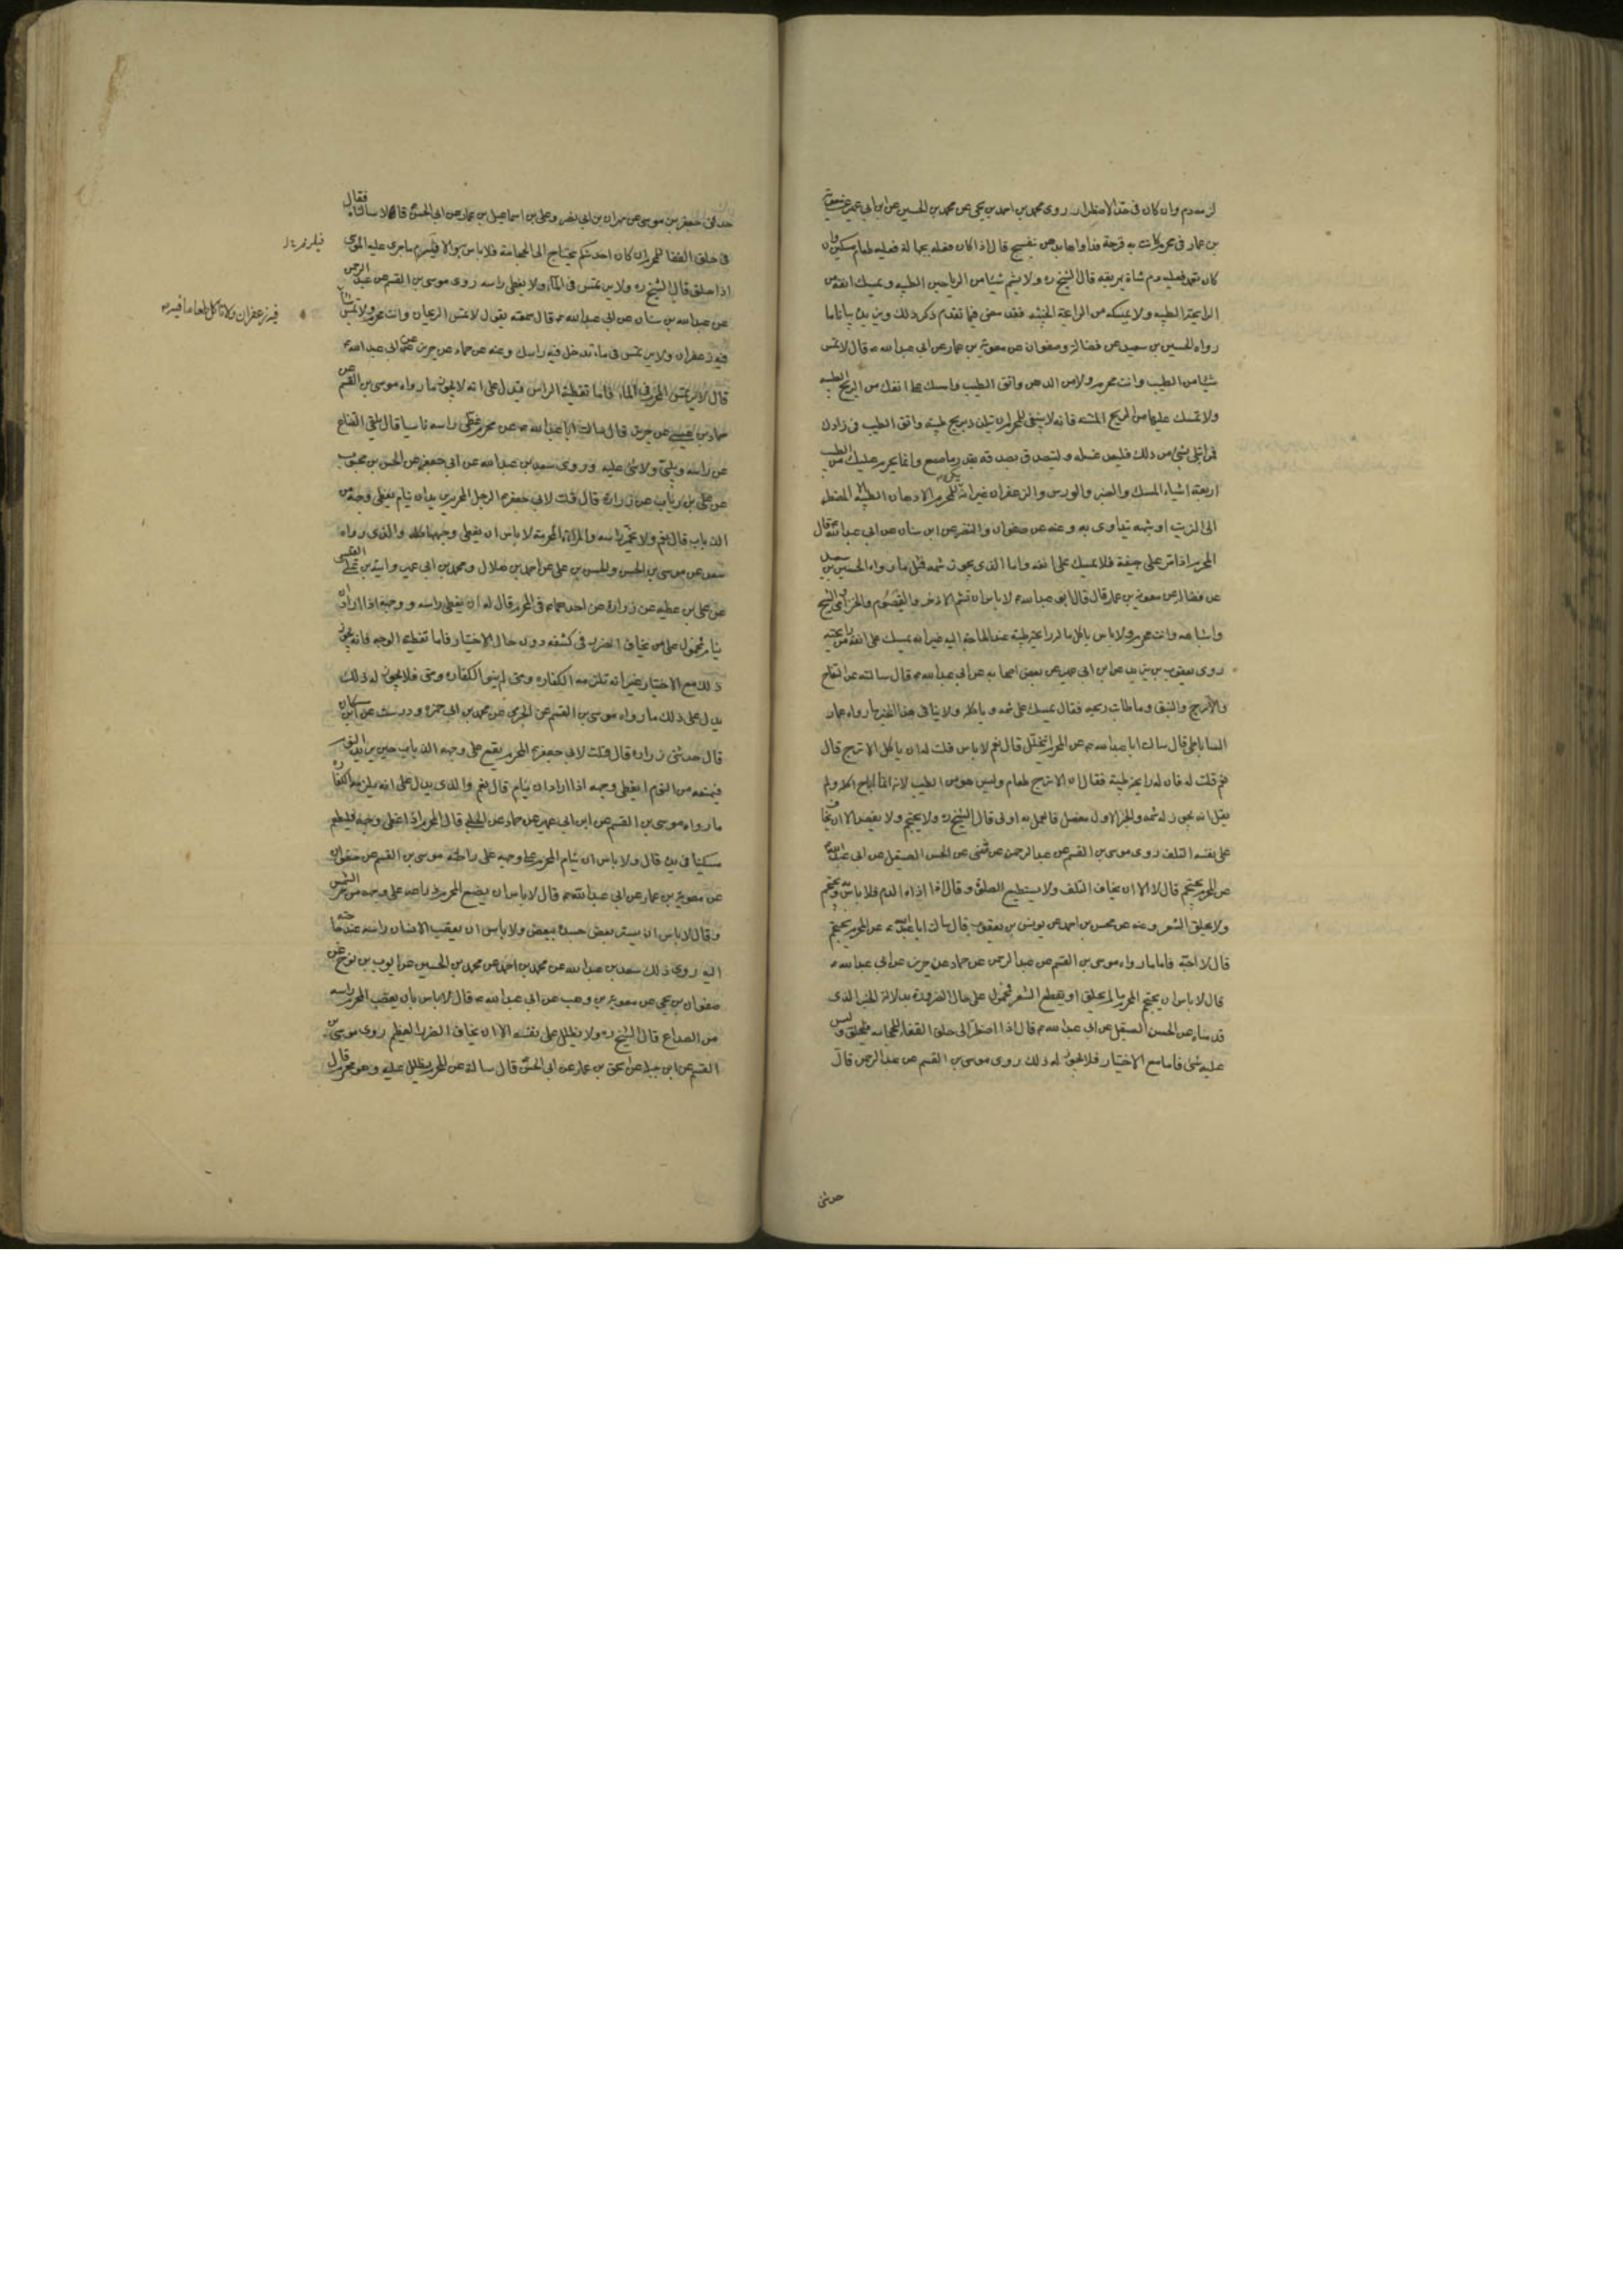 لزمه دم وان كان فى حال الاضطرار روى محمد بن احمد بن يحيى عن محمد بن الحسين عن ابن ابى عمير عن معوية
بن عمار فى محرم كانت به قرحة فداواها بدهن بنفسج قال اذا كان فعله بجهالة فعليه طعام مسكين وان
كان تعمد فعليه دم شاة يهريقه قال الشيخ ره ولا يشم شيئا من الرياحين الطيبه ويمسك انفه من
الرايحة الطيبه ولا يمسكه من الرايحة الخبيثه فقد مضى فيما تقدم ذكر ذلك ويزيده بيانا ما
رواه الحسين بن سعيد عن فضالة وصفوان عن معوية بن عمار عن ابى عبد الله ع قال لا تمس
شيئا من الطيب وانت محرم ولا من الدهن واتق الطيب وامسك على انفك من الريح الطيبه
ولا تمسك عليها من الريح المنتنه فانه لا ينبغى للمحرم ان يتلذذ بريح طيبه واتق الطيب فى زادك
فمن ابتلى بشئ من ذلك فليعد غسله وليتصدق بصدقه بقدر ما صنع وانما يحرم عليك من الطيب
اربعة اشياء المسك والعنبر والورس والزعفران غير انه يكره للمحرم الادهان الطيبه الا المضطر
الى الزيت او شبهه يتداوى به وعنه عن صفوان والنضر عن ابن سنان عن ابى عبد الله ع قال
المحرم اذا مر على جيفة فلا يمسك على انفه واما الذى يجوز شمه فمثل ما رواه الحسين بن سعيد
عن فضالة عن معوية بن عمار قال قال ابو عبد الله ع لا باس ان تشم الاذخر والقيصوم والخزامى والشيح
واشباهه وانت محرم ولا باس باكل ما له رايحة طيبة عند الحاجة اليه غير انه يمسك على انفه من رايحته
روى يعقوب بن يزيد عن ابن ابى عمير عن بعض اصحابه عن ابى عبد الله ع قال سالته عن التفاح
والاترج والنبق وما طاب ريحه فقال يمسك على شمه وياكله ولا ينافى هذا الخبر ما رواه عمار
الساباطى قال سالت ابا عبد الله ع عن المحرم يتخلل قال نعم لا باس قلت له ان ياكل الاترج قال
نعم قلت له فان له رايحة طيبة فقال ان الاترج طعام وليس هو من الطيب لانه انما اباح اكله ولم
يقل انه يجوز له شمه والخبر الاول مفصل فالعمل به اولى قال الشيخ ره ولا يحتجم ولا يفتصد الا ان يخاف
على نفسه التلف روى موسى بن القسم عن عبد الرحمن عن مثنى عن الحسن الصيقل عن ابى عبد الله ع
عن المحرم يحتجم قال لا الا ان يخاف التلف ولا يستطيع الصلوة وقال اذا اذاه الدم فلا باس به ويحتجم
ولا يحلق الشعر وعنه عن محسن بن احمد عن يونس بن يعقوب قال سالت ابا عبد الله ع عن المحرم يحتجم
قال لا احبه فاما ما رواه موسى بن القسم عن عبد الرحمن عن حماد عن حريز عن ابى عبد الله ع
قال لا باس ان يحتجم المحرم ما لم يحلق او يقطع الشعر فمحمول على حال الضرورة بدلالة الخبر الذى
قدمناه عن الحسن الصيقل عن ابى عبد الله ع قال اذا اضطر الى حلق القفا للحجامه فليحلق وليس
عليه شئ فاما مع الاختيار فلا يجوز له ذلك روى موسى بن القسم عن عبد الرحمن قال
حدثنى
حدثنى جعفر بن موسى عن مهران بن ابى نصر وعلى بن اسماعيل بن عمار عن ابى الحسن ع قالا سالناه فقال
فى حلق القفا للمحرم ان كان احد منكم يحتاج الى الحجامة فلا باس به والا فيلزم ما جرى عليه الموسى
اذا حلق قال الشيخ ره ولا يرتمس فى الماء ولا يغطى راسه روى موسى بن القسم عن عبد الرحمن
عن عبد الله بن سنان عن ابى عبد الله ع قال سمعته يقول لا تمس الريحان وانت محرم ولا تمس شيئا
فيه زعفران ولا ترتمس فى ماء تدخل فيه راسك وعنه عن حماد عن حريز عن ابى عبد الله ع
قال لا يرتمس المحرم فى الماء فاما تغطية الراس فيدل على انه لا يجوز ما رواه موسى بن القسم عن
حماد بن عيسى عن حريز قال سالت ابا عبد الله ع عن محرم غطى راسه ناسيا قال يلقى القناع
عن راسه ويلبى ولا شئ عليه وروى سعد بن عبد الله عن ابى جعفر عن الحسن بن محبوب
عن على بن رئاب عن زرارة قال قلت لابى جعفر ع الرجل المحرم يريد ان ينام يغطى وجهه من
الذباب قال نعم ولا يخمر راسه والمراة المحرمة لا باس ان يغطى وجهها كله والذى رواه
سعد عن موسى بن الحسن والحسن بن على عن احمد بن هلال ومحمد بن ابى عمير وامية بن على القيسى
عن على بن عطيه عن زرارة عن احدهما ع فى المحرم قال له ان يغطى راسه ووجهه اذا اراد ان
ينام فمحمول على من يخاف الضرر فى كشفه دون حال الاختيار فاما تغطية الوجه فانه يجوز
ذلك مع الاختيار غير انه تلزمه الكفاره ومتى لم ينو الكفاره ومتى فلا يجوز له ذلك
يدل على ذلك ما رواه موسى بن القسم عن الجرمى عن محمد بن ابى حمزه ودرست عن ابن مسكان
قال حدثنى زرارة قال قلت لابى جعفر ع المحرم يقع على وجهه الذباب حين يريد النوم
فيمنعه من النوم ايغطى وجهه اذا اراد ان ينام قال نعم والذى يدل على انه يلزمه الكفاره
ما رواه موسى بن القسم عن ابن ابى عمير عن حماد عن الحلبى قال المحرم اذا غطى وجهه فليطعم
مسكينا فى يده قال ولا باس ان ينام المحرم على وجهه على راحلته موسى بن القسم عن صفوان
عن معوية بن عمار عن ابى عبد الله ع قال لا باس ان يضع المحرم ذراعه على وجهه من حر الشمس
وقال لا باس ان يستر بعض جسده ببعض ولا باس ان يعصب الانسان راسه عند حاجته
اليه روى ذلك سعد بن عبد الله عن محمد بن احمد عن محمد بن الحسين عن ايوب بن نوح عن
صفوان بن يحيى عن معوية بن وهب عن ابى عبد الله ع قال لا باس بان يعصب المحرم راسه
من الصداع قال الشيخ ره ولا يظلل على نفسه الا ان يخاف الضرر العظيم روى موسى بن
القسم عن ابن جبلة عن اسحق بن عمار عن ابى الحسن ع قال سالته عن المحرم يظلل عليه وهو محرم قال
فيلزم
فيه زعفران ولا تاكل طعاما فيه